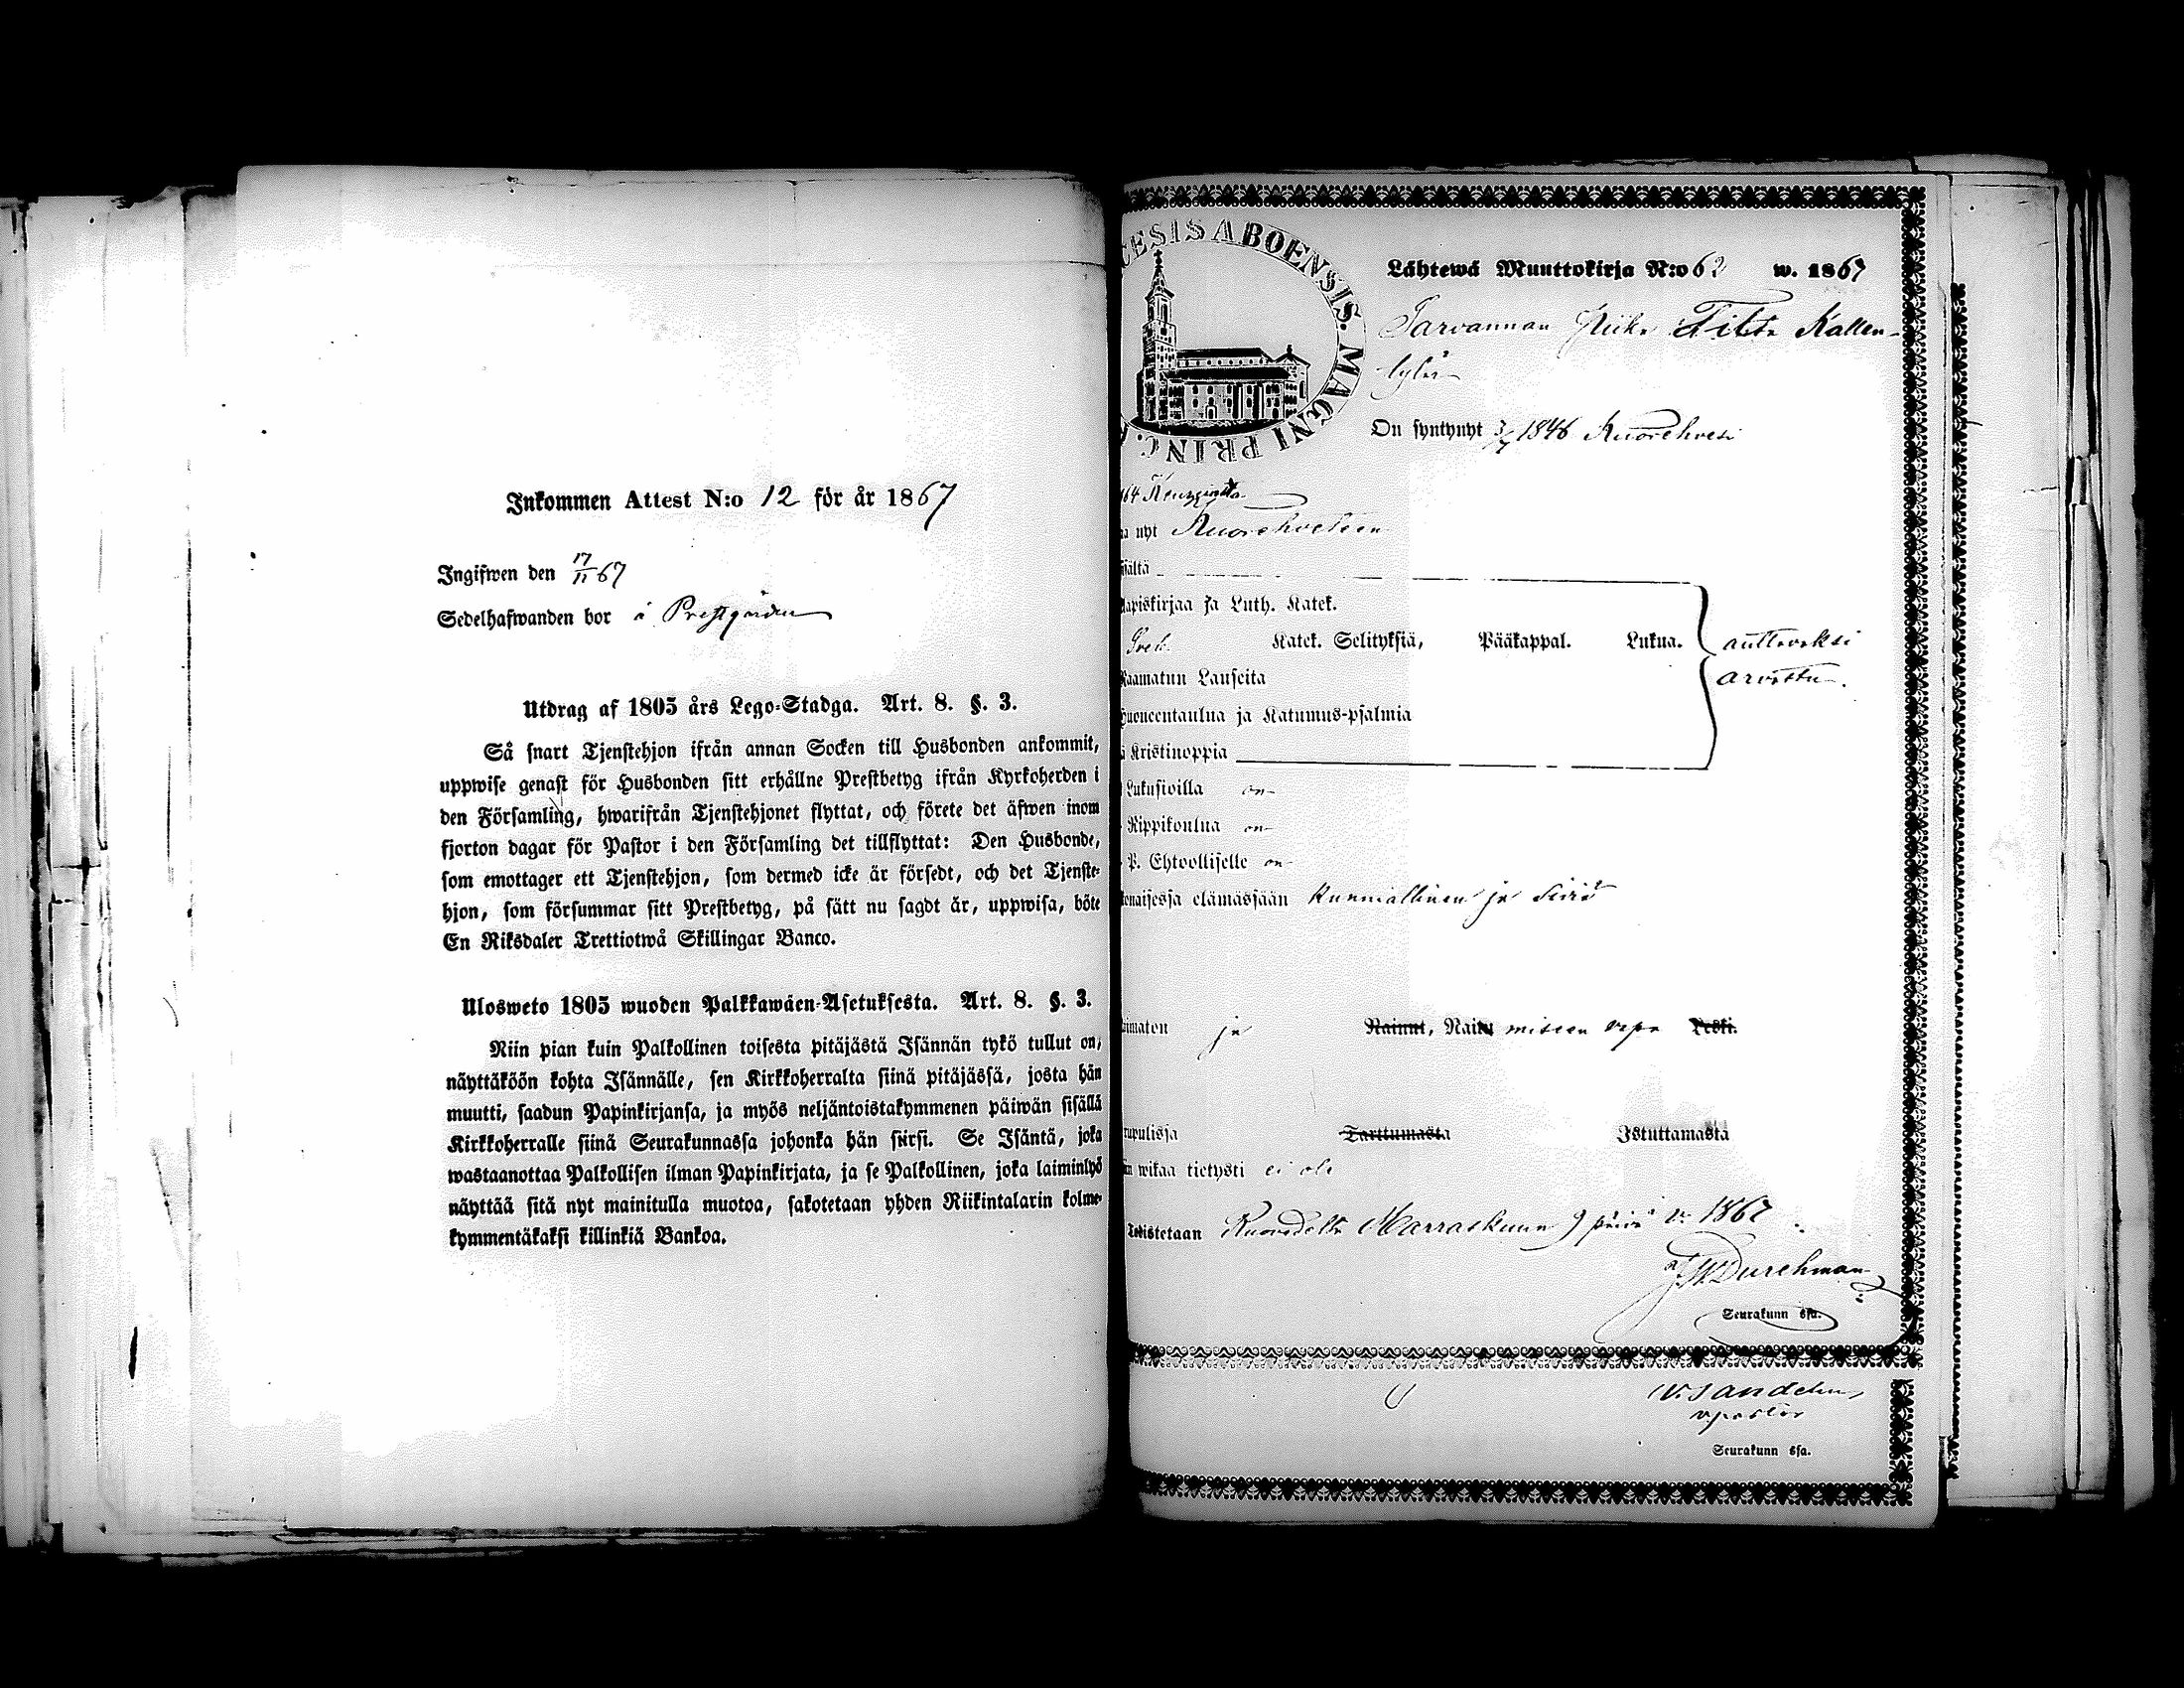 Inkommen Attest N:o 12 för år 1867
Ingifwen den 17/11 67
Sedelhafwanden bor å Prestgården
Utdrag af 1805 års Lego-Stadga. Art. 8. §. 3.
Så snart Tjenstehjon ifrån annan Socken till Husbonden ankommit,
uppwise genast för Husbonden sitt erhållne Prestbetyg ifrån Kyrkoherden i
den Församling, hwarifrån Tjenstehjonet flyttat, och förete det äfwen inom
fjorton dagar för Pastor i den Församling det tillflyttat: Den Husbonde,
som emottager ett Tjenstehjon, som dermed icke är försedt, och det Tjenste-
hjon, som försummar sitt Prestbetyg, på sätt nu sagdt är, uppwisa, böte
En Riksdaler Trettiotwå Skillingar Banco.
Ulosweto 1805 wuoden Palkkawäen-Asetuksesta. Art. 8. §. 3.
Niin pian kuin Palkollinen toisesta pitäjästä Isännän tykö tullut on,
näyttäköön kohta Isännälle, sen Kirkkoherralta siinä pitäjässä, josta hän
muutti, saadun Papinkirjansa, ja myös neljäntoistakymmenen päiwän sisällä
Kirkkoherralle siinä Seurakunnassa johonka hän siirsi. Se Isäntä, joka
wastaanottaa Palkollisen ilman Papinkirjata, ja se Palkollinen, joka laiminlyö
näyttää sitä nyt mainitulla muotoa, sakotetaan yhden Riikintalarin kolme-
kymmentäkaksi killinkiä Bankoa.
CESIS ABOENSIS. MAGNI PRINC.
Lähtewä Muuttokirja N:o 62 w. 1867
Kallen-
On syntynyt 1846 Kuorehvesi
nyt Kuorehveteen
sältä
apiskirjaa ja Luth. Katek.
Katek. Selityksiä, Pääkappal. Lukua. auttavaksi
Raamatun Lauseita arvattu.
Huoneentaulua ja Katumus-psalmia
Kristinoppia
Lukusioilla on
Rippikoulua on
P. Ehtoolliselle on
enaisessa elämässään kunniallinen ja siviä
imaton ja Nainut, Naimiseen vapa Leski.
rupulissa Tarttumasta Istuttamasta
wikaa tietysti ei ole
Todistetaan Marraskuun 9 päivä v. 1867
Durchman
Seurakunn ssa.
vpastor
Seurakunn ssa.